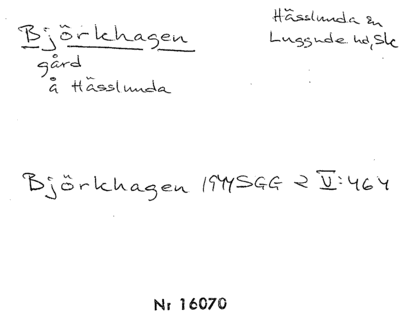 Björkhagen
gård
å Hässlunda
Hässlunda sn
Luggude hd, Sk
Björkhagen 1944 SGG 2 V:464
Nr 16070